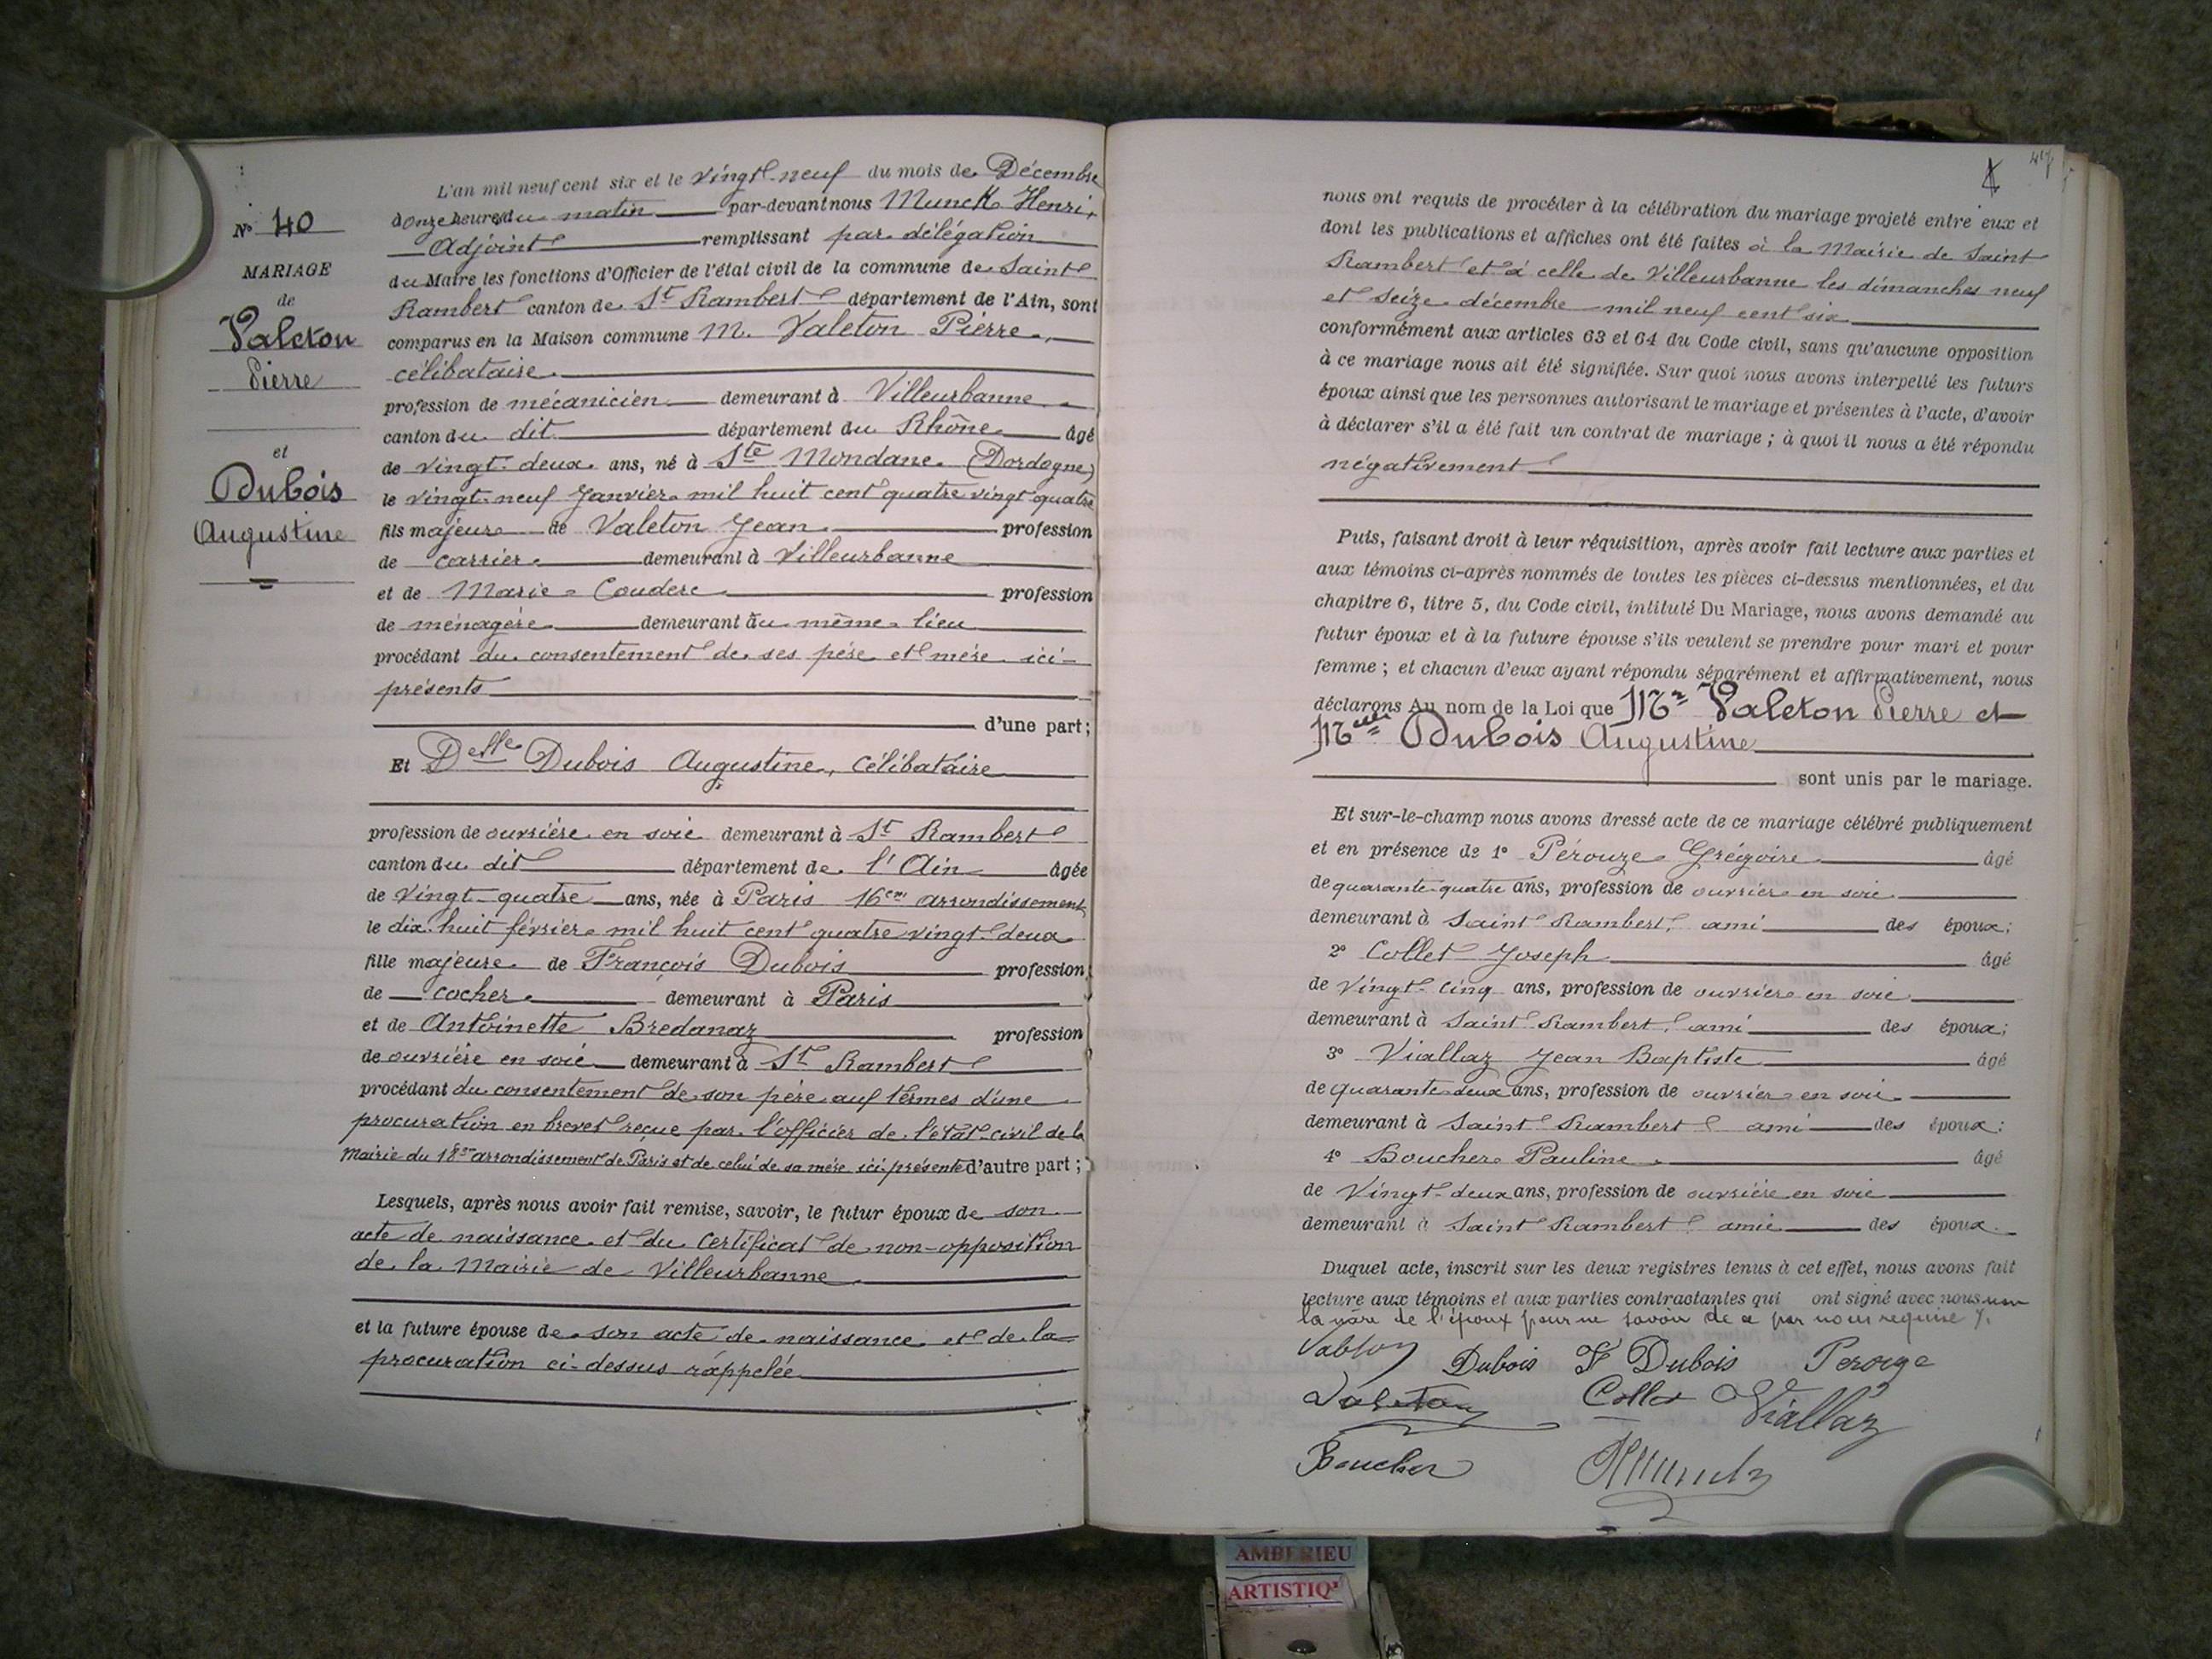 N° 40
MARIAGE
de
Valeton
Pierre
et
Dubois
Augustine
L'an mil neuf cent six et le vingt-neuf du mois de Décembre
à onze heures du matin par-devant nous Munck Henri,
Adjoint remplissant par délégation
du Maire les fonctions d'Officier de l'état civil de la commune de Saint
Rambert canton de St Rambert département de l'Ain, sont
comparus en la Maison commune M. Valeton Pierre,
célibataire
profession de mécanicien demeurant à Villeurbanne
canton du dit département du Rhône âgé
de vingt-deux ans, né à Ste Mondane (Dordogne)
le vingt-neuf Janvier mil huit cent quatre vingt quatre
fils majeur de Valeton Jean profession
de carrier demeurant à Villeurbanne
et de Marie Couderc profession
de ménagère demeurant au même lieu
procédant du consentement de ses père et mère ici-
présents
d'une part;
Et Delle Dubois Augustine, célibataire
profession de ouvrière en soie demeurant à St Rambert
canton du dit département de l'Ain âgée
de vingt-quatre ans, née à Paris 16em arrondissement
le dix-huit février mil huit cent quatre vingt-deux
fille majeure de François Dubois profession
de cocher demeurant à Paris
et de Antoinette Bredanaz profession
de ouvrière en soie demeurant à St Rambert
procédant du consentement de son père aux termes d'une
procuration en brevet reçue par l'officier de l'état-civil de la
Mairie du 18em arrondissement de Paris et de celui de sa mère ici présente d'autre part;
Lesquels, après nous avoir fait remise, savoir, le futur époux de son
acte de naissance et du certificat de non-opposition
de la Mairie de Villeurbanne
et la future épouse de son acte de naissance et de la
procuration ci-dessus rappelée
47
nous ont requis de procéder à la célébration du mariage projeté entre eux et
dont les publications et affiches ont été faites à la Mairie de Saint
Rambert et à celle de Villeurbanne les dimanches neuf
et seize décembre mil neuf cent six
conformément aux articles 63 et 64 du Code civil, sans qu'aucune opposition
à ce mariage nous ait été signifiée. Sur quoi nous avons interpellé les futurs
époux ainsi que les personnes autorisant le mariage et présentes à l'acte, d'avoir
à déclarer s'il a été fait un contrat de mariage; à quoi il nous a été répondu
négativement
Puis, faisant droit à leur réquisition, après avoir fait lecture aux parties et
aux témoins ci-après nommés de toutes les pièces ci-dessus mentionnées, et du
chapitre 6, titre 5, du Code civil, intitulé Du Mariage, nous avons demandé au
futur époux et à la future épouse s'ils veulent se prendre pour mari et pour
femme; et chacun d'eux ayant répondu séparément et affirmativement, nous
déclarons Au nom de la Loi que Mr Valeton Pierre et
Melle Dubois Augustine
sont unis par le mariage.
Et sur-le-champ nous avons dressé acte de ce mariage célébré publiquement
et en présence de 1° Pérouze Grégoire âgé
de quarante-quatre ans, profession de ouvrier en soie
demeurant à Saint Rambert, ami des époux;
2° Collet Joseph âgé
de vingt-cinq ans, profession de ouvrier en soie
demeurant à Saint Rambert, ami des époux;
3° Viallaz Jean Baptiste âgé
de quarante-deux ans, profession de ouvrier en soie
demeurant à Saint Rambert ami des époux;
4° Boucher Pauline âgé
de vingt-deux ans, profession de ouvrière en soie
demeurant à Saint Rambert amie des époux.
Duquel acte, inscrit sur les deux registres tenus à cet effet, nous avons fait
lecture aux témoins et aux parties contractantes qui ont signé avec nous non
la mère de l'époux pour ne savoir de ce par nous requise
Dubois F Dubois Perouze
Valeton Collet Viallaz
Boucher HMunck
AMBERIEU
ARTISTIQ